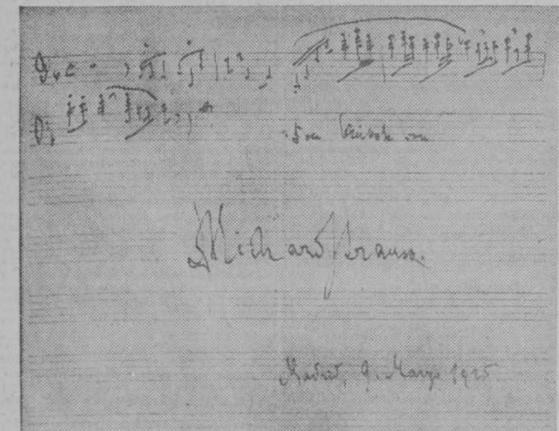 Don
Richard Strauss.
Madrid, 9. Marzo 1925